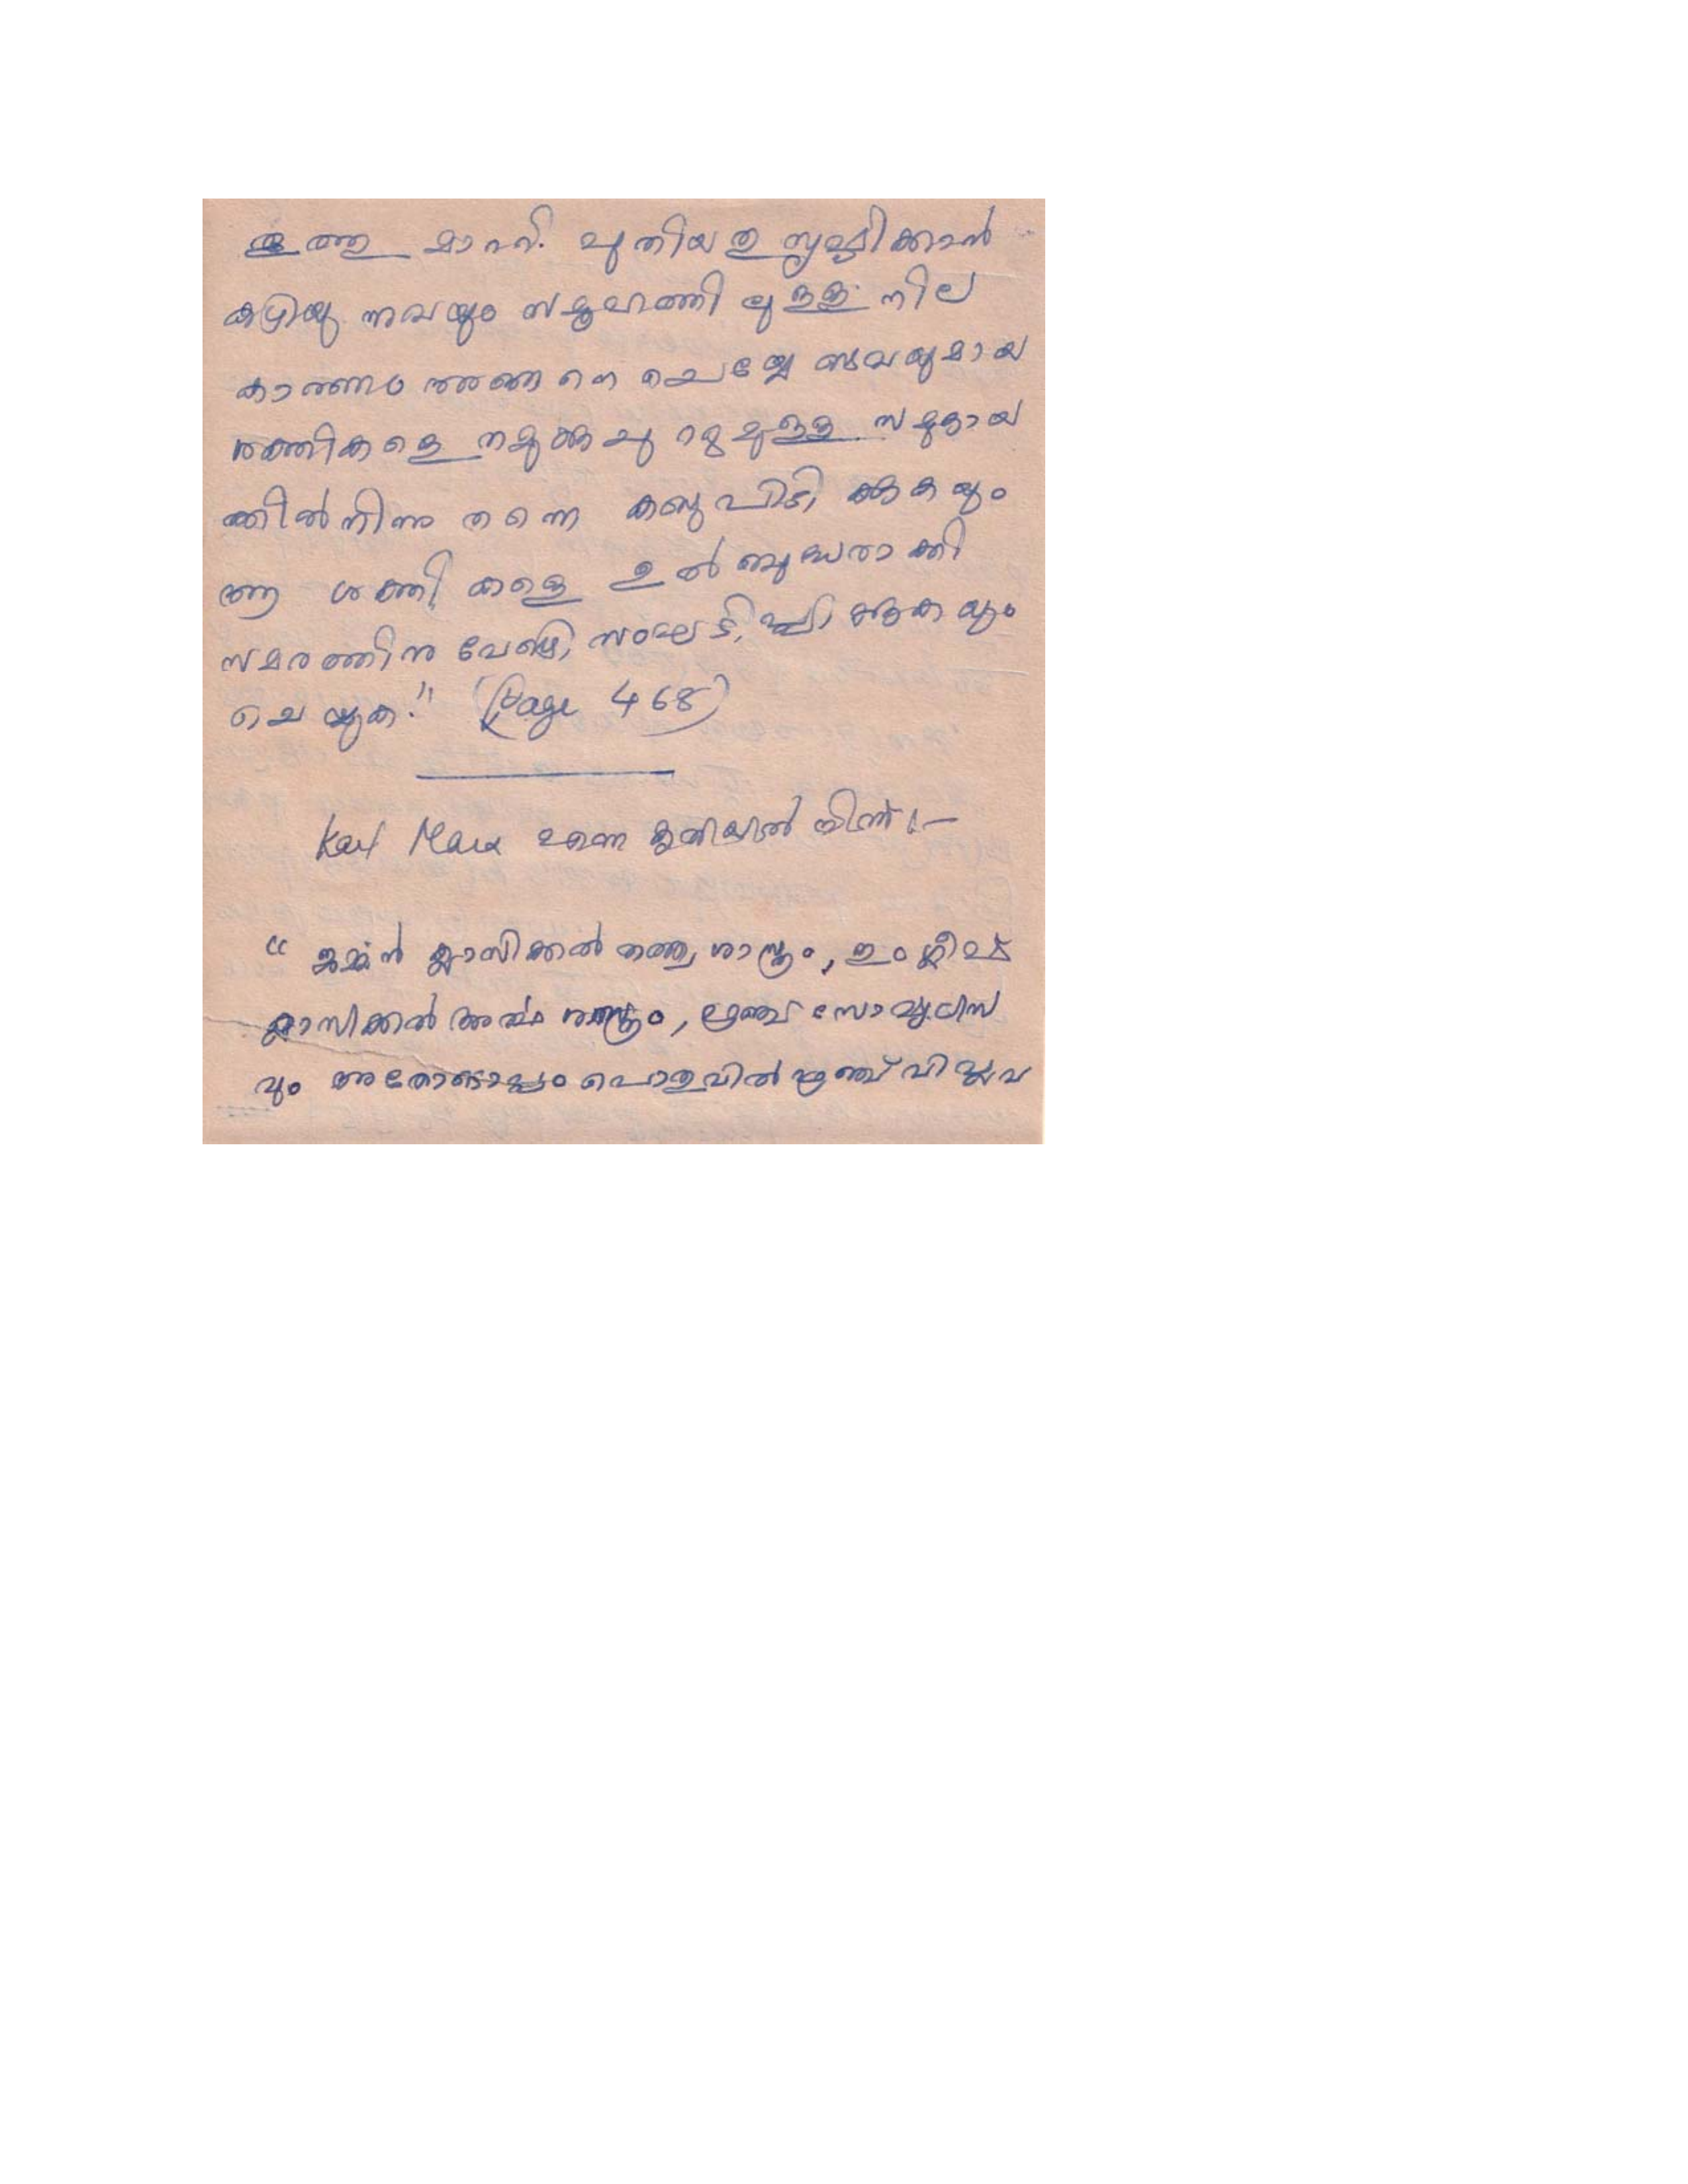 മാററി. പുതിയതു സൃഷ്ടിക്കാൻ
കഴിയുന്നവയും സമൂഹത്തിലുള്ള നില
കാരണം അങ്ങനെ ചെയ്യേണ്ടവയുമായ
ശക്തികളെ നമുക്കു ചുററുമുള്ള സമുദായ
ത്തിൽനിന്നു തന്നെ കണ്ടുപിടിക്കുകയും
ആ ശക്തികളെ ഉൽബുദ്ധരാക്കി
സമരത്തിനു വേണ്ടി സംഘടിപ്പിക്കുകയും
ചെയ്യുക." (Page 468)
Karl Marx എന്ന കൃതിയിൽ നിന്ന് :-
“ ജർമ്മൻ ക്ലാസിക്കൽ തത്വശാസ്ത്രം, ഇംഗ്ലീഷ്
ക്ലാസിക്കൽ അർത്ഥശാസ്ത്രം, ഫ്രഞ്ച് സോഷ്യലിസ
വും അതോടൊപ്പം പൊതുവിൽ ഫ്രഞ്ച് വിപ്ലവ